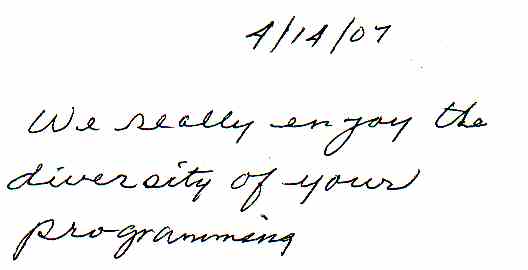 4/14/07
We really enjoy the
diversity of your
programming